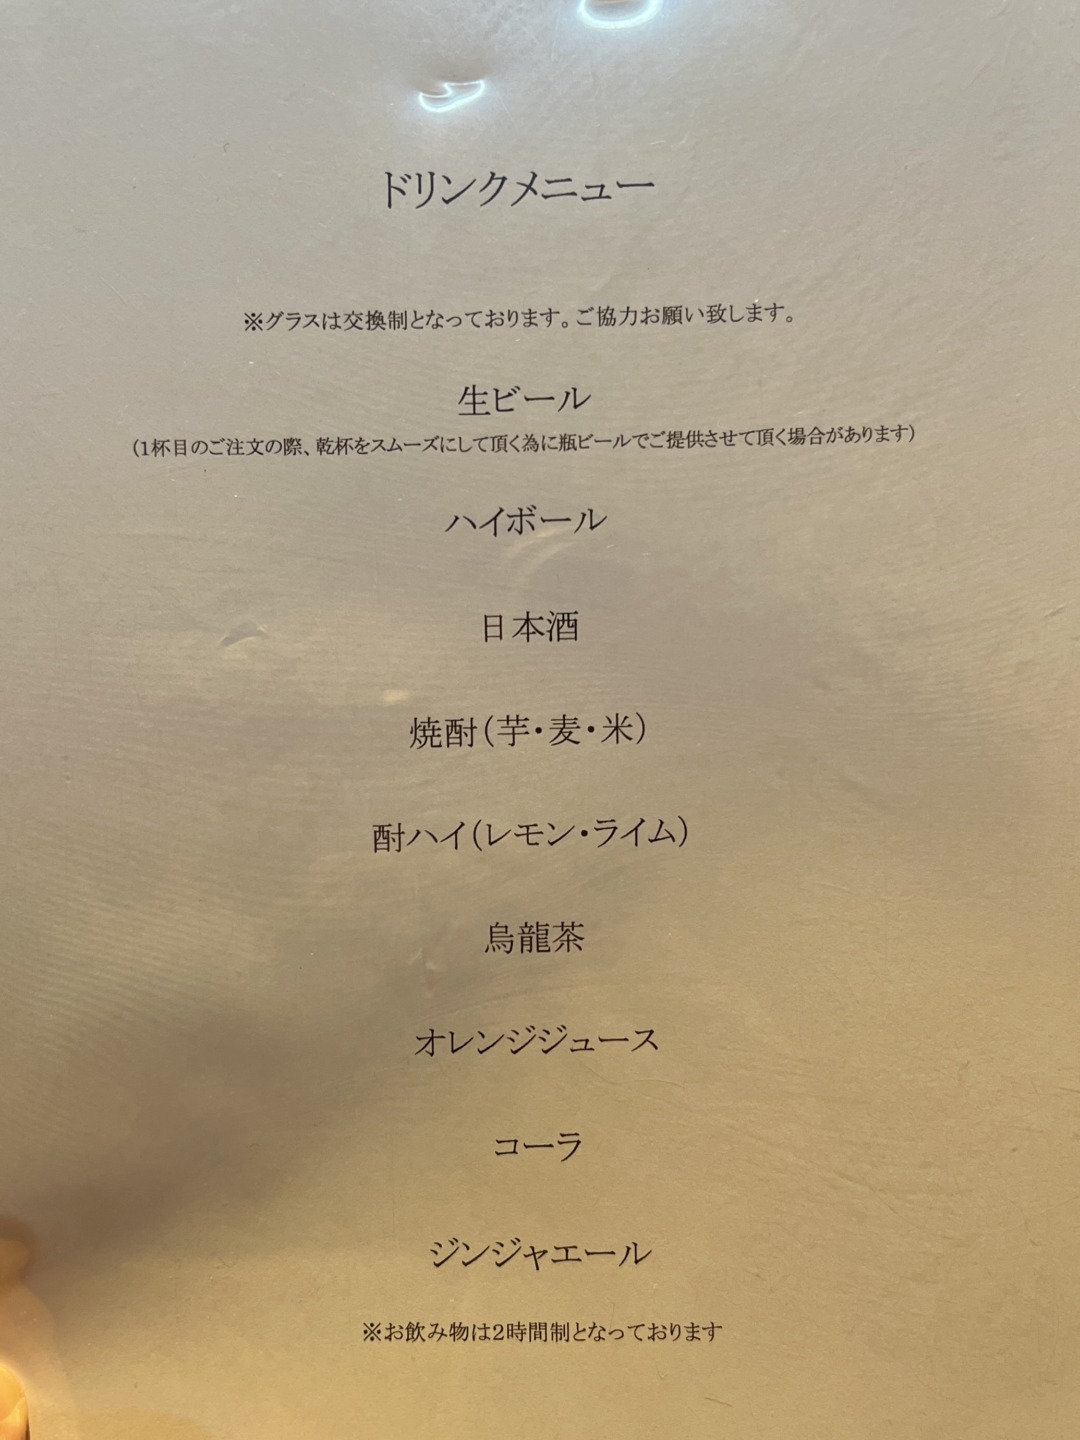 ドリンクメニュー
※グラスは交換制となっております。ご協力お願い致します。
生ビール
(1杯目のご注文の際、乾杯をスムーズにして頂く為に瓶ビールでご提供させて頂く場合があります)
ハイボール
日本酒
焼酎(芋・麦・米)
酎ハイ(レモン・ライム)
烏龍茶
オレンジジュース
コーラ
ジンジャエール
※お飲み物は2時間制となっております